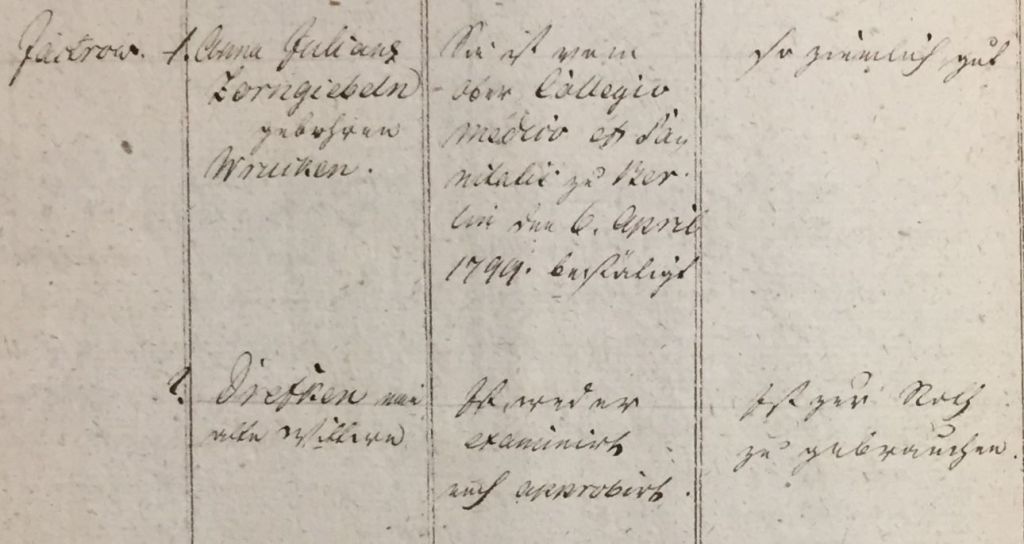 Jastrow. 1. Anna Juliana
Zorngiebeln
gebohren
Wrucken.
Sie ist vom
Ober Collegio
medico et Sa-
nitatis zu Ber-
lin den 6. April
1799. bestätigt
so ziemlich gut
2. Drefken eine
alte Wittwe
Ist weder
examinirt
noch approbirt.
Ist zur Noth
zu gebrauchen.